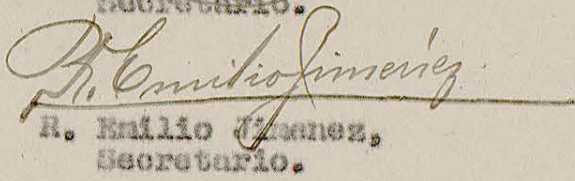 Secretario.
R. Emilio Jimenez.
R. Emilio Jimenez,
Secretario.